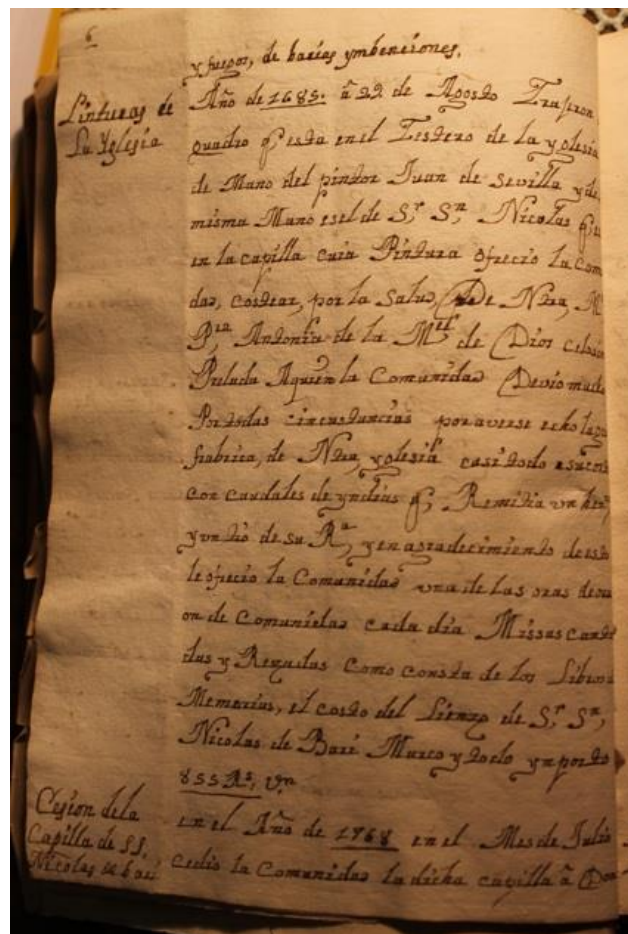 6
y fuegos, de barias ymbenciones.
Pinturas de
La Yglesia
Año de 1685. â 22 de Agosto Trajeron
quadro q̃ esta en el Testero de la yglesia
de Mano del pintor Juan de Sevilla y de
misma Mano es el de S.r S.n Nicolas q̃
en la capilla cuia Pintura ofrecio La Com
dad, costear, por la Salud, De Ntra, M
P,ra Antonia de la M.d de Dios
Prelada Aquien la Comunidad Devio much
Por todas circunstancias por averse echo la
fabrica, de Ntra, yglesia casi todo
con caudales de yndias q̃, Remitia un her
y un tio de su R.a, y en agradecimiento de esto
le ofrecio la Comunidad una de las oras de
on de Comunidad cada dia Missas canta
das y Rezadas Como consta de los Libros
Memorias, el costo del Lienzo de S.r S.n,
Nicolas de Bari Marco y todo ymporto
855 R.s, V.n
Cesion dela
Capilla de SS.
Nicolas de bari
en el Año de 1768 en el Mes de Julio
cedio la Comunidad la dicha capilla â Don